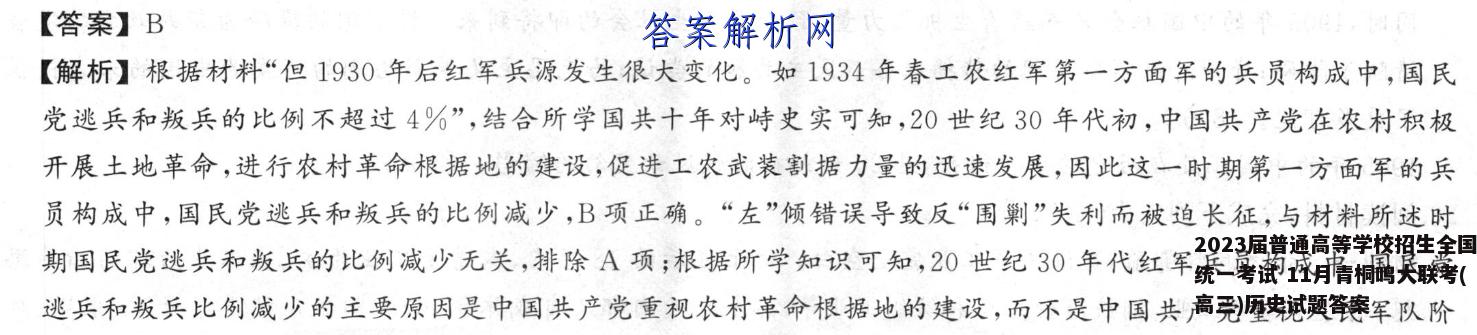 【答案】B
答案解析网
【解析】根据材料“但1930年后红军兵源发生很大变化。如1934年春工农红军第一方面军的兵员构成中,国民
党逃兵和叛兵的比例不超过4%”,结合所学国共十年对峙史实可知,20世纪30年代初,中国共产党在农村积极
开展土地革命,进行农村革命根据地的建设,促进工农武装割据力量的迅速发展,因此这一时期第一方面军的兵
员构成中,国民党逃兵和叛兵的比例减少,B项正确。“左”倾错误导致反“围剿”失利而被迫长征,与材料所述时
期国民党逃兵和叛兵的比例减少无关,排除A项;根据所学知识可知,20世纪30年代红军兵员构成中,国民党
逃兵和叛兵比例减少的主要原因是中国共产党重视农村革命根据地的建设,而不是中国共产党重视人民军队阶
2023届普通高等学校招生全国
统一考试 11月青桐鸣大联考(
高三)历史试题答案